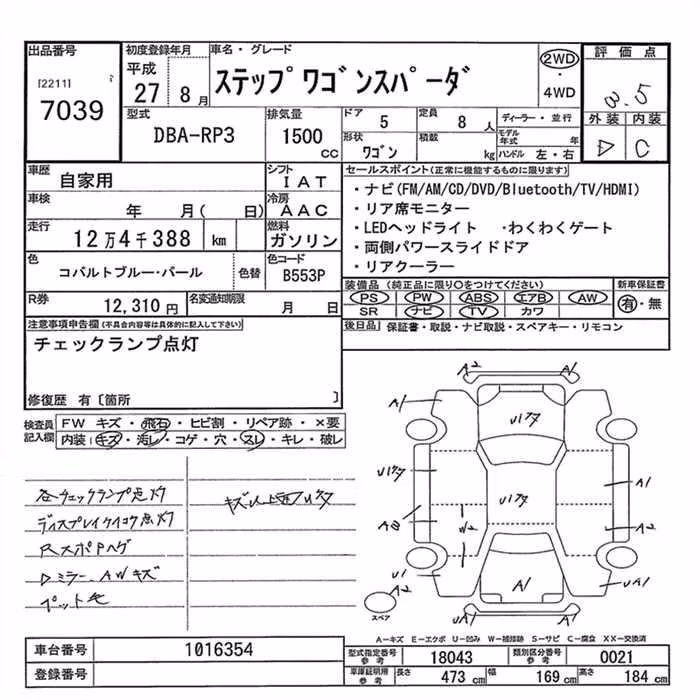 出品番号
[2211]
7039
初度登録年月
平成
27 8月
車名・グレード
ステップワゴンスパーダ
2WD
・
4WD
評価点
3.5
外装 内装
D C
型式
DBA-RP3
排気量
1500
cc
ドア 5
定員 8人
形状
ワゴン
積載 kg
ディーラー・並行
モデル年式 年
ハンドル 左・右
車歴
自家用
シフト
IAT
車検
年 月( 日)
冷房
AAC
走行
12万4千388 km
燃料
ガソリン
色
コバルトブルー・パール
色替
色コード
B553P
R券
12,310円
名変通知期限
月 日
セールスポイント(正常に機能するものに限ります)
・ナビ(FM/AM/CD/DVD/Bluetooth/TV/HDMI)
・リア席モニター
・LEDヘッドライト ・わくわくゲート
・両側パワースライドドア
・リアクーラー
装備品(純正品に限り○をつけてください)
新車保証書
PS PW ABS エアB AW
SR ナビ TV カワ
有・無
後日品 保証書・取説・ナビ取説・スペアキー・リモコン
注意事項申告欄(不具合内容等は具体的に記入して下さい)
チェックランプ点灯
修復歴 有〔箇所 〕
検査員記入欄
FW キズ・飛石・ヒビ割・リペア跡・×要
内装:キズ・汚レ・コゲ・穴・スレ・キレ・破レ
各チェックランプ点灯
ディスプレイケイコウ点灯
RスポPハゲ
Dミラー、AWキズ
ペット毛
A2
A1
U1クタ
U1クタ
U1クタ
A1
A2
W2
U1
A1
UA1
A2
A2
スペア
A―キズ E―エクボ U―凹み W―補修跡 S―サビ C―腐食 XX―交換済
車台番号
1016354
登録番号
型式指定番号 参考
18043
類別区分番号 参考
0021
車庫証明用 参考
長さ 473cm
幅 169cm
高さ 184cm